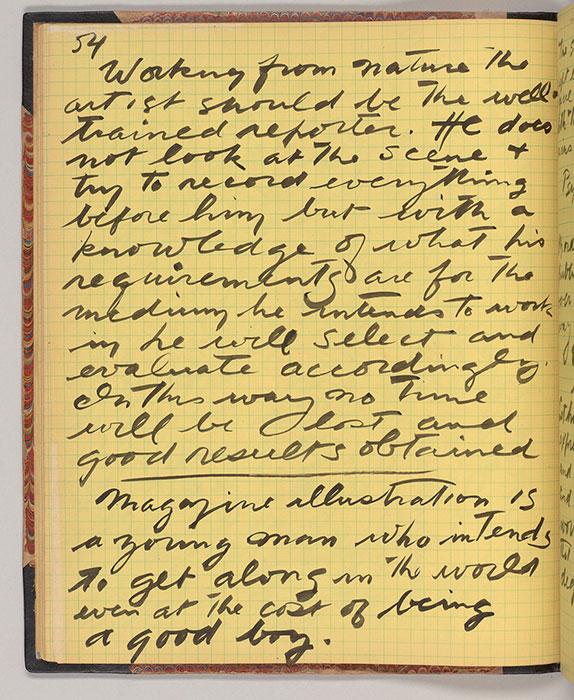 54
Working from nature the
artist should be the well-
trained reporter. He does
not look at the scene +
try to record everything
before him but with a
knowledge of what his
requirements are for the
medium he intends to work
in he will select and
evaluate accordingly.
In this way no time
will be lost and
good results obtained
Magazine illustration is
a young man who intends
to get along in the world
even at the cost of being
a good boy.